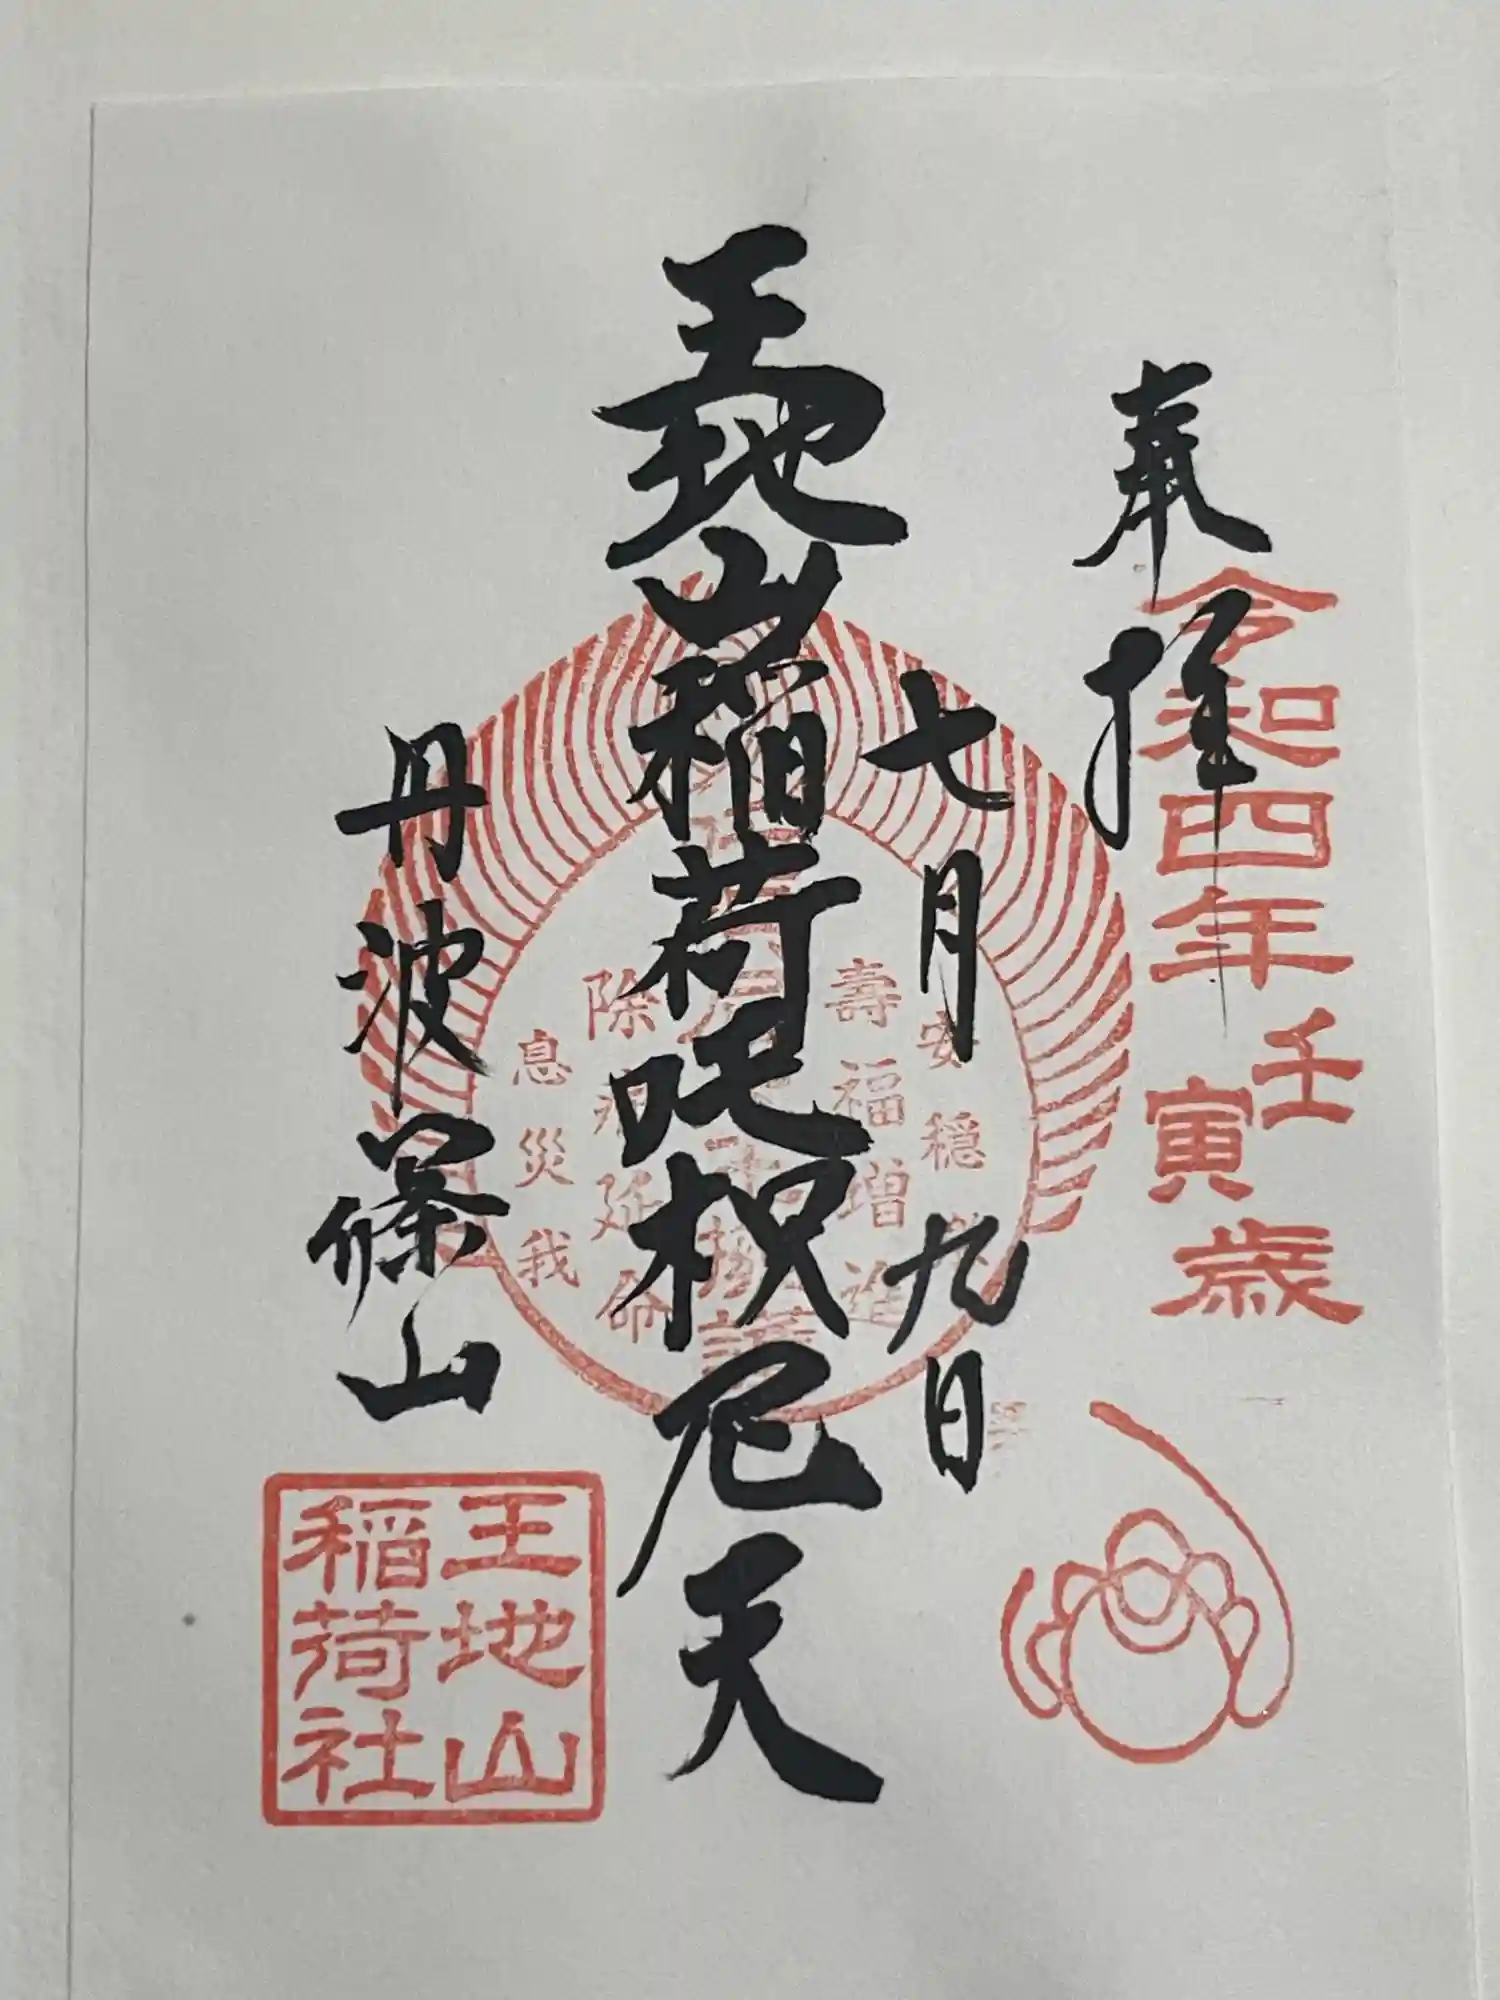 奉拝
令和四年
壬寅歳
七月九日
王地山稲荷吒枳尼天
安穏
壽福増進
除病延命
息災我
丹波篠山
王地山
稲荷社